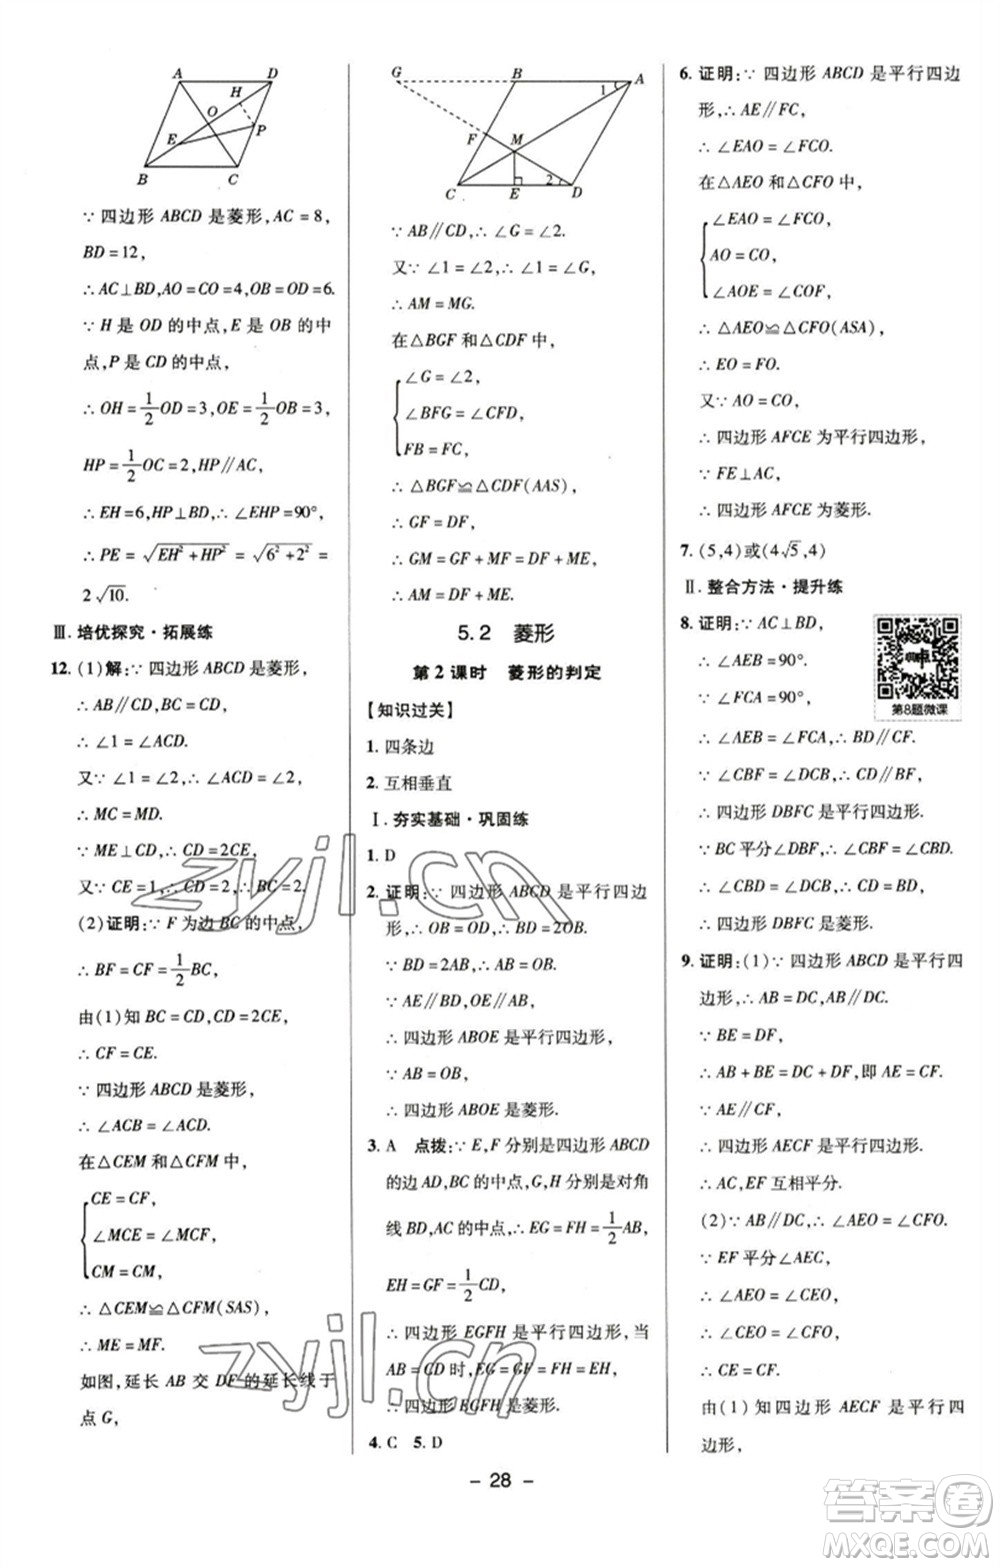 A
D
H
O
P
E
B
C
∵ 四边形 ABCD 是菱形, AC = 8,
BD = 12,
∴ AC⊥BD, AO = CO = 4, OB = OD = 6.
∵ H 是 OD 的中点, E 是 OB 的中
点, P 是 CD 的中点,
∴ OH = 1/2 OD = 3, OE = 1/2 OB = 3,
HP = 1/2 OC = 2, HP∥AC,
∴ EH = 6, HP⊥BD, ∴ ∠EHP = 90°,
∴ PE = √(EH² + HP²) = √(6² + 2²) =
2√10.
Ⅲ. 培优探究·拓展练
12. (1)解: ∵ 四边形 ABCD 是菱形,
∴ AB∥CD, BC = CD,
∴ ∠1 = ∠ACD.
又∵ ∠1 = ∠2, ∴ ∠ACD = ∠2,
∴ MC = MD.
∵ ME⊥CD, ∴ CD = 2CE,
又∵ CE = 1, ∴ CD = 2, ∴ BC = 2.
(2)证明: ∵ F 为边 BC 的中点,
∴ BF = CF = 1/2 BC,
由(1)知 BC = CD, CD = 2CE,
∴ CF = CE.
∵ 四边形 ABCD 是菱形,
∴ ∠ACB = ∠ACD.
在△CEM 和△CFM 中,
CE = CF,
∠MCE = ∠MCF,
CM = CM,
∴ △CEM≌△CFM(SAS),
∴ ME = MF.
如图, 延长 AB 交 DF 的延长线于
点 G,
G
B
A
1
F
M
C
E
2
D
∵ AB∥CD, ∴ ∠G = ∠2.
又∵ ∠1 = ∠2, ∴ ∠1 = ∠G,
∴ AM = MG.
在△BGF 和△CDF 中,
∠G = ∠2,
∠BFG = ∠CFD,
FB = FC,
∴ △BGF≌△CDF(AAS),
∴ GF = DF,
∴ GM = GF + MF = DF + ME,
∴ AM = DF + ME.
5.2 菱形
第 2 课时 菱形的判定
【知识过关】
1. 四条边
2. 互相垂直
Ⅰ. 夯实基础·巩固练
1. D
2. 证明: ∵ 四边形 ABCD 是平行四边
形, ∴ OB = OD, ∴ BD = 2OB.
∵ BD = 2AB, ∴ AB = OB.
∵ AE∥BD, OE∥AB,
∴ 四边形 ABOE 是平行四边形,
∵ AB = OB,
∴ 四边形 ABOE 是菱形.
3. A 点拨: ∵ E, F 分别是四边形 ABCD
的边 AD, BC 的中点, G, H 分别是对角
线 BD, AC 的中点, ∴ EG = FH = 1/2 AB,
EH = GF = 1/2 CD,
∴ 四边形 EGFH 是平行四边形, 当
AB = CD 时, EG = GF = FH = EH,
∴ 四边形 EGFH 是菱形.
4. C 5. D
6. 证明: ∵ 四边形 ABCD 是平行四边
形, ∴ AE∥FC,
∴ ∠EAO = ∠FCO.
在△AEO 和△CFO 中,
∠EAO = ∠FCO,
AO = CO,
∠AOE = ∠COF,
∴ △AEO≌△CFO(ASA),
∴ EO = FO.
又∵ AO = CO,
∴ 四边形 AFCE 为平行四边形,
∵ FE⊥AC,
∴ 四边形 AFCE 为菱形.
7. (5,4)或(4√5,4)
Ⅱ. 整合方法·提升练
8. 证明: ∵ AC⊥BD,
∴ ∠AEB = 90°.
∵ ∠FCA = 90°,
第8题微课
∴ ∠AEB = ∠FCA, ∴ BD∥CF.
∵ ∠CBF = ∠DCB, ∴ CD∥BF,
∴ 四边形 DBFC 是平行四边形.
∵ BC 平分∠DBF, ∴ ∠CBF = ∠CBD.
∴ ∠CBD = ∠DCB, ∴ CD = BD,
∴ 四边形 DBFC 是菱形.
9. 证明: (1)∵ 四边形 ABCD 是平行四
边形, ∴ AB = DC, AB∥DC.
∵ BE = DF,
∴ AB + BE = DC + DF, 即 AE = CF.
∵ AE∥CF,
∴ 四边形 AECF 是平行四边形.
∴ AC, EF 互相平分.
(2)∵ AB∥DC, ∴ ∠AEO = ∠CFO.
∵ EF 平分∠AEC,
∴ ∠AEO = ∠CEO,
∴ ∠CEO = ∠CFO,
∴ CE = CF.
由(1)知四边形 AECF 是平行四
边形,
- 28 -
zyjl.cn
zyjl.cn
答案圈
MXQE.COM